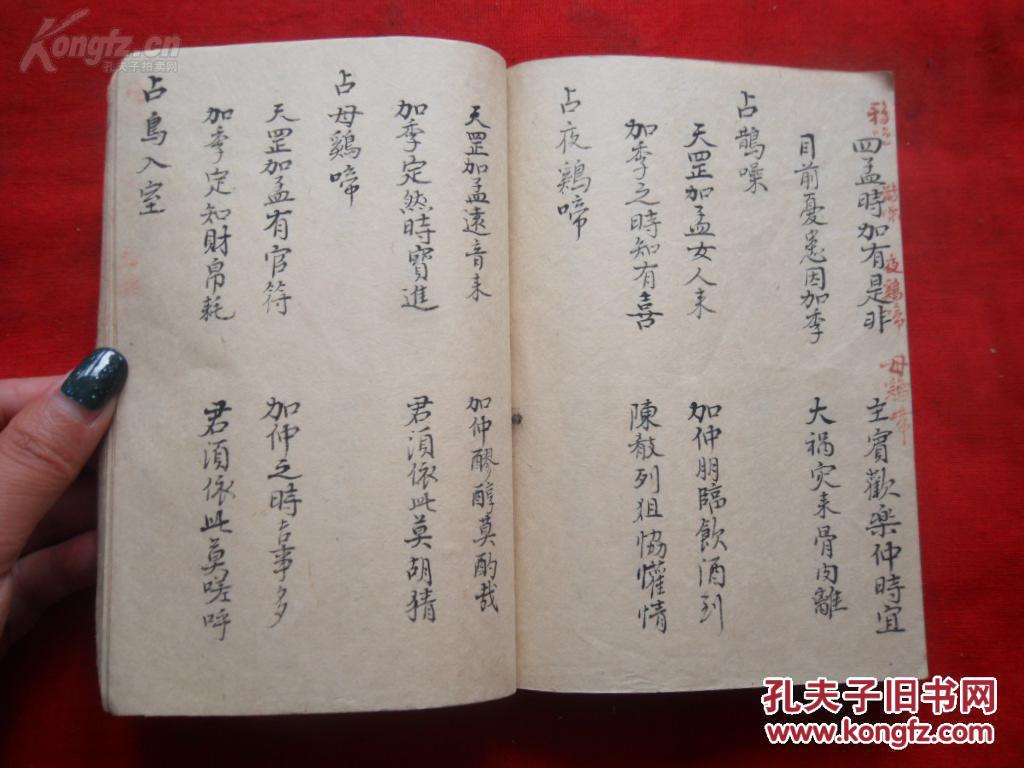 四孟時加有是非　主賓歡樂仲時宜
目前憂患因加季　大禍灾来骨肉離
占鵲噪
天罡加孟女人来　加仲朋臨飲酒到
加季之時知有喜　陳殽列狙恊懽情
占夜鷄啼
天罡加孟遠音来　加仲醪醇莫酌哉
加季定然時寳進　君須依此莫胡猜
占母鷄啼
天罡加孟有官符　加仲之時吉事多
加季定知財帛耗　君須依此莫嗟呼
占鳥入室
夜鷄啼
母鷄啼
Kongfz.cn
孔夫子拍卖网
孔夫子旧书网
www.kongfz.com